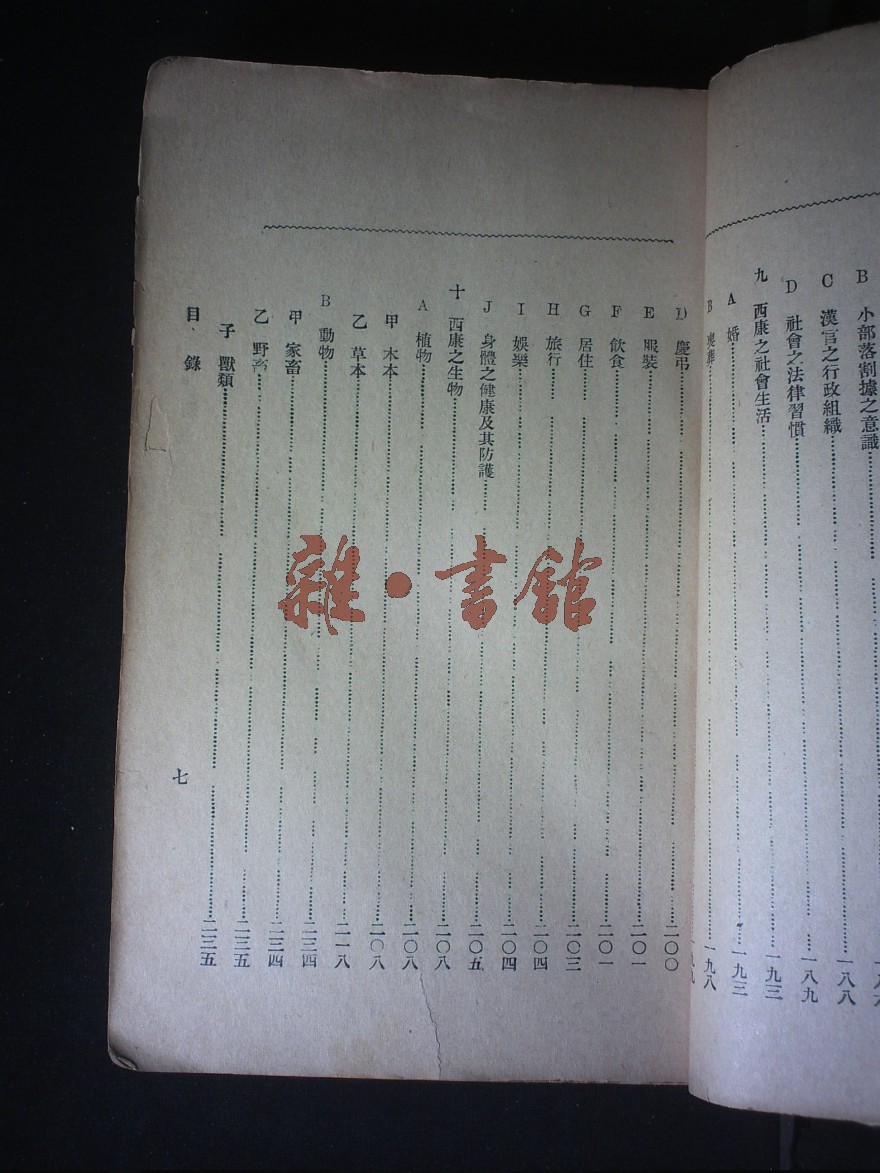 B 小部落割據之意識
C 漢官之行政組織 一八八
D 社會之法律習慣 一八九
九 西康之社會生活 一九三
A 婚 一九三
B 一九八
D 慶弔 二〇〇
E 服裝 二〇一
F 飲食 二〇一
G 居住 二〇三
H 旅行 二〇四
I 娛樂 二〇四
J 身體之健康及其防護 二〇五
十 西康之生物 二〇八
A 植物 二〇八
甲 木本 二〇八
乙 草本 二一八
B 動物 二三四
甲 家畜 二三四
乙 野畜 二三五
子 獸類 二三五
目錄
七
雜·書館